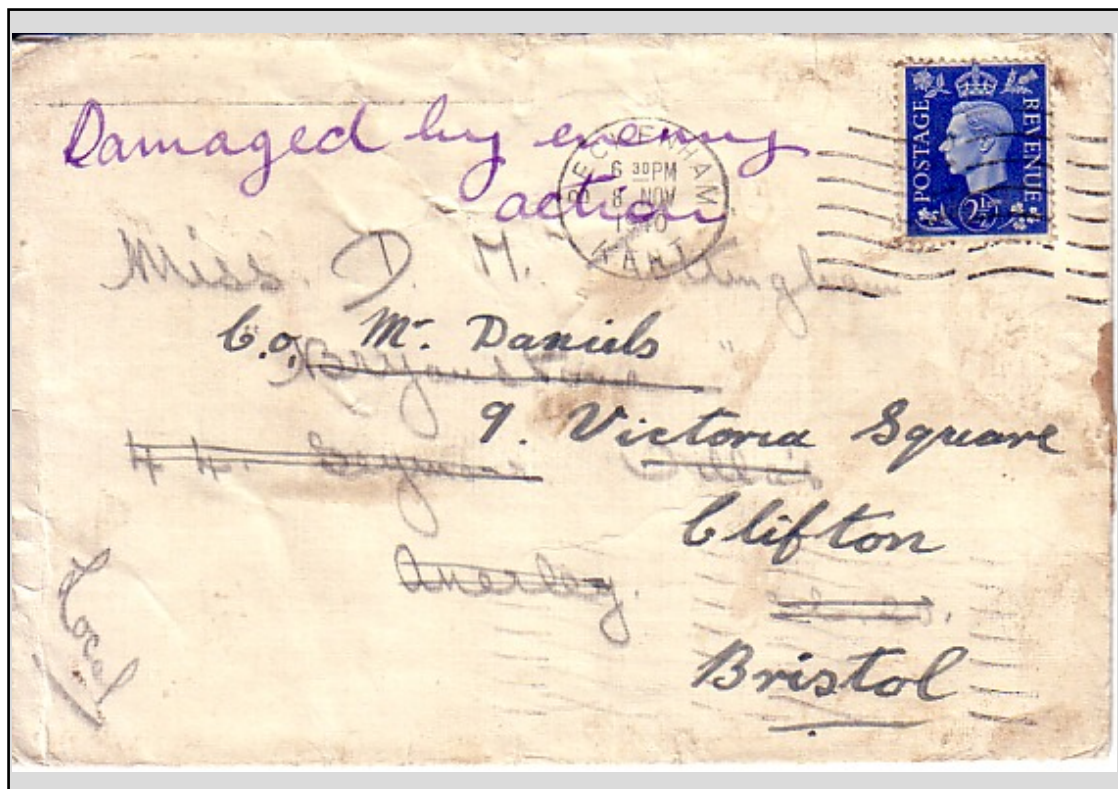 Damaged by enemy
action
BECKENHAM
6 30PM
8 NOV
1940
KENT
POSTAGE
REVENUE
2½D
Miss. D. M.
C.o. Mr. Daniels
9. Victoria Square
44. Seymour Villas
Clifton
Anerley.
Bristol
Local